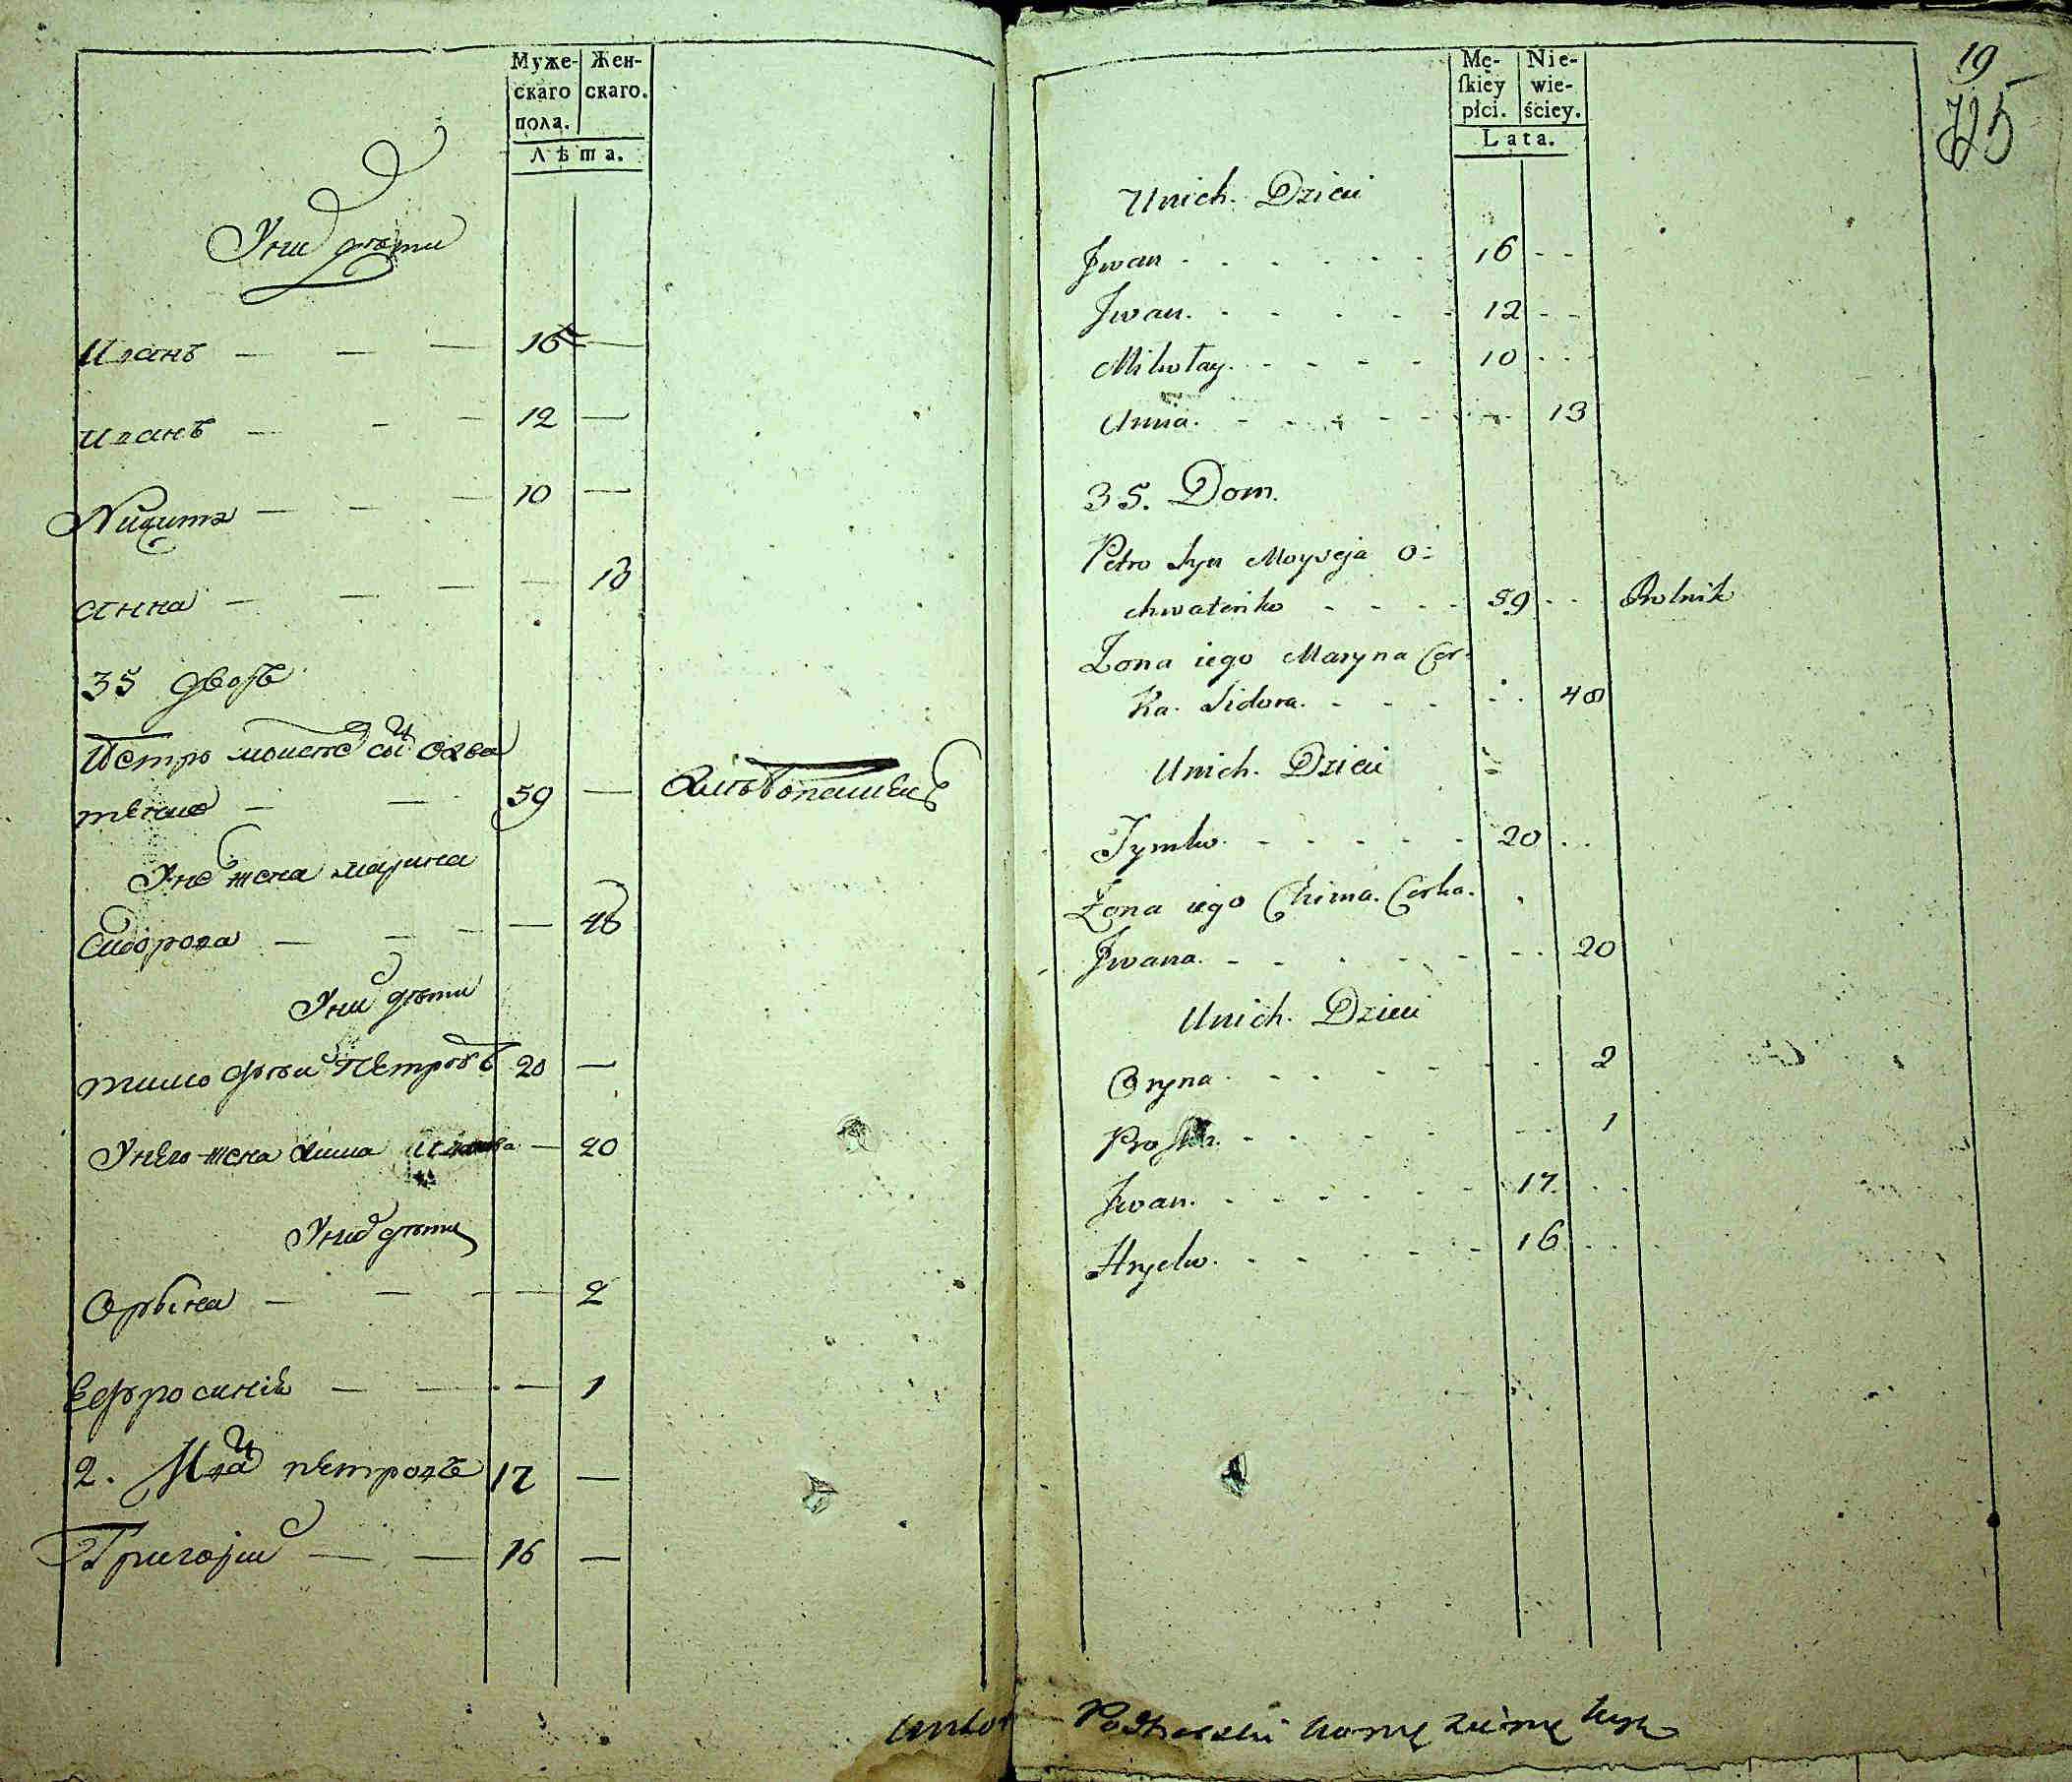 Муже- Жен-
скаго скаго.
пола.
Лѣта.
У ни дѣти
Иванъ — — — 16 —
Иванъ — — — 12 —
Никита — — — 10 —
Анна — — — — 13
35 дворъ
Петро моисѣе сы Охва
тенко — — 59 — Хлѣбопашецъ
У не жена марина
Сидорова — — — — 48
У ни дѣти
тимофѣй Петровъ 20 —
У него жена Хима Иванова — 20
У ни дѣти
Орына — — — — 2
Ефросиния — — — 1
2. Ива петровъ 17 —
Григорий — — 16 —
Mę- Nie-
ſkiey wie-
płci. ściey.
Lata.
19
725
Unich. Dzieci
Jwan - - - - - - 16 - -
Jwan. - - - - - 12 - -
Mikołay. - - - - 10 - - -
Anna. - - - - - - - 13
35. Dom.
Petro Syn Moyseja O=
chwatenko - - - - 59 - - Rolnik
Żona iego Maryna Cor-
ka. Sidora. - - - - - - 48
Unich. Dzieci
Tymko. - - - - - 20 - -
Żona iego Chima. Corka.
Jwana. - - - - - - - 20
Unich. Dzieci
Oryna. - - - - - - 2
- - - - - - 1
Jwan. - - - - - - 17. - -
Hryćko. - - - - - 16 - -